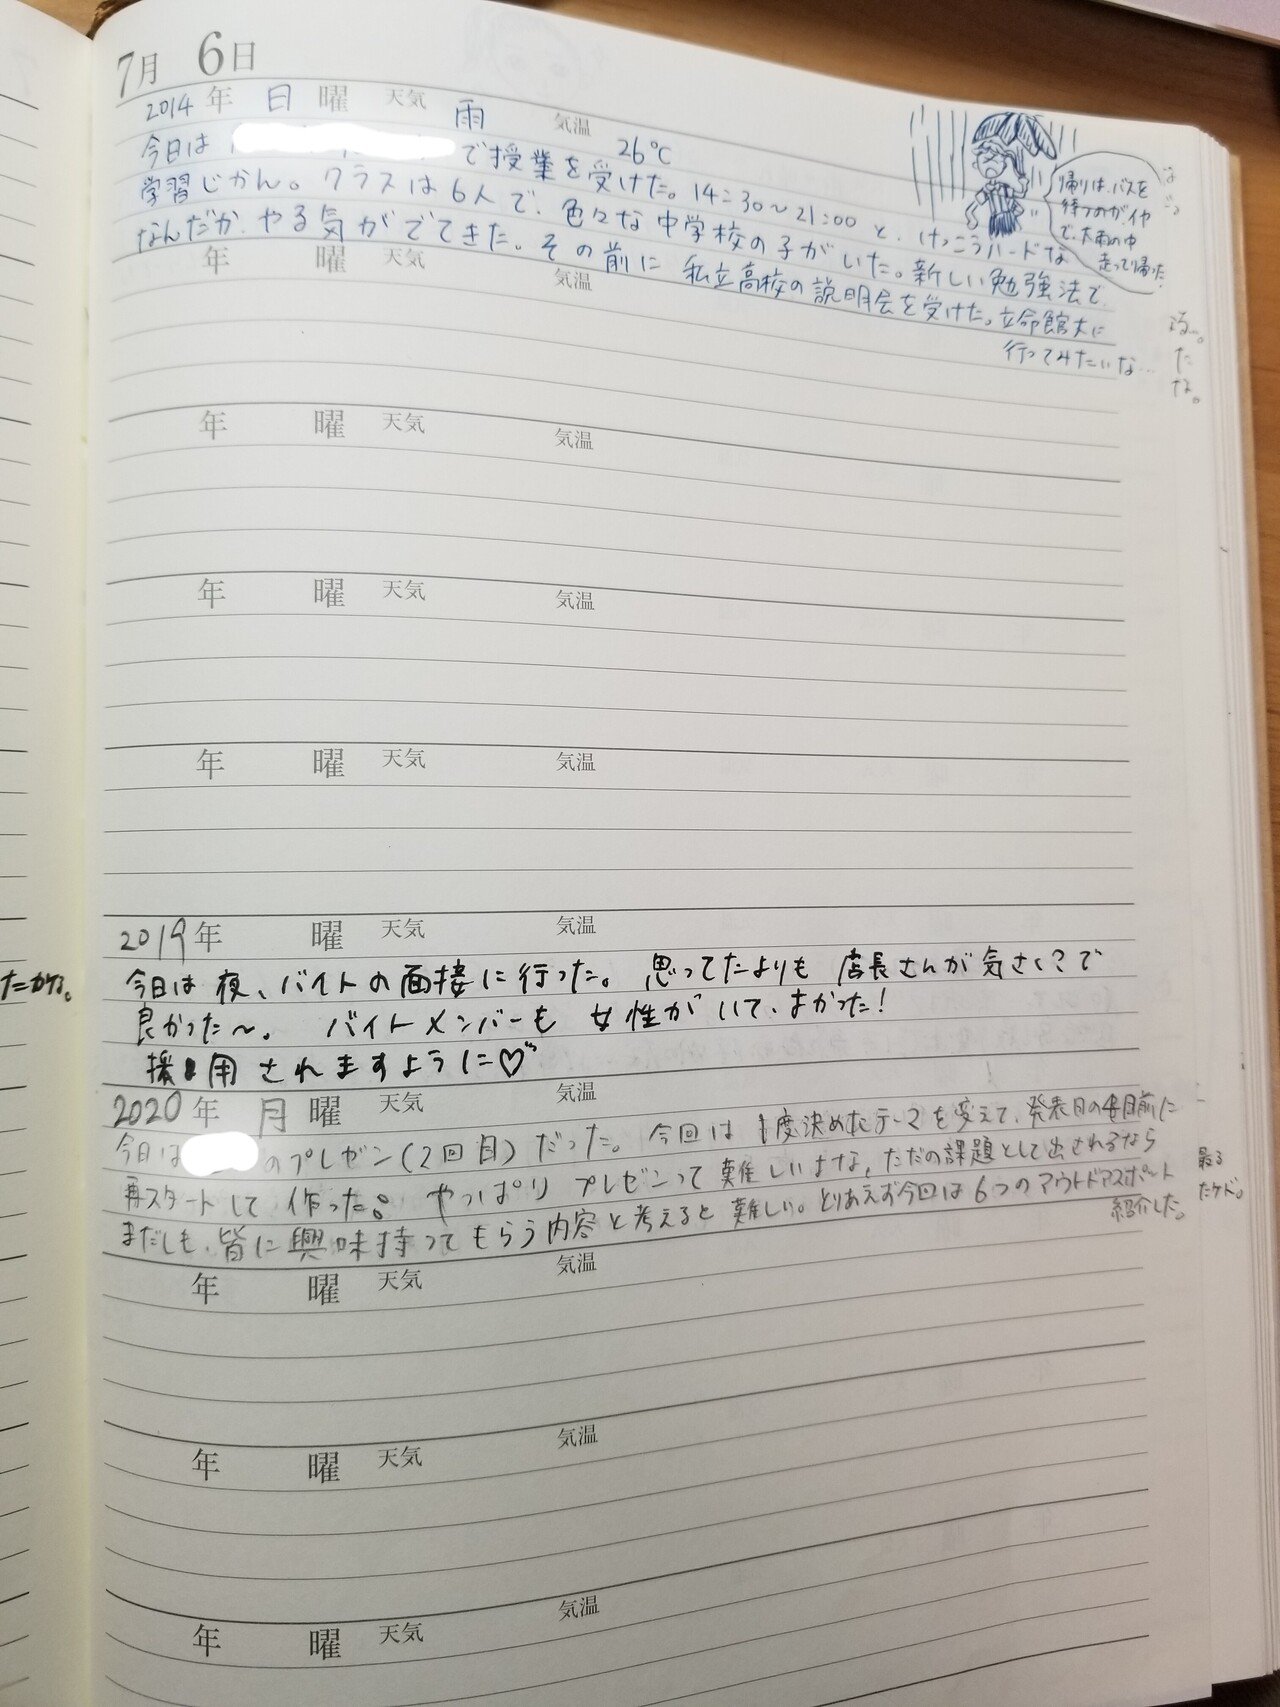 7月 6日
2014年 日曜 天気 雨 気温 26℃
今日は で授業を受けた。14:30〜21:00と、けっこうハードな
学習じかん。クラスは6人で、色々な中学校の子がいた。新しい勉強法で、
なんだか、やる気がでてきた。その前に私立高校の説明会を受けた。立命館大に
行ってみたいな…
帰りは、バスを
待つのがイヤ
で、大雨の中
走って帰った。
年 曜 天気 気温
年 曜 天気 気温
年 曜 天気 気温
年 曜 天気 気温
2019年 曜 天気 気温
今日は夜、バイトの面接に行った。思ってたよりも店長さんが気さく?で
良かった〜。バイトメンバーも女性がいて、よかった!
用されますように♡
2020年 月曜 天気 気温
今日は のプレゼン(2回目)だった。今回は1度決めたテーマを変えて、発表日の4日前に
再スタートして作った。やっぱりプレゼンって難しいよな。ただの課題として出されるなら
まだしも、皆に興味持ってもらう内容と考えると難しい。とりあえず今回は6つのアウトドアスポット
紹介した。
年 曜 天気 気温
年 曜 天気 気温
年 曜 天気 気温
たかな。
たケド。